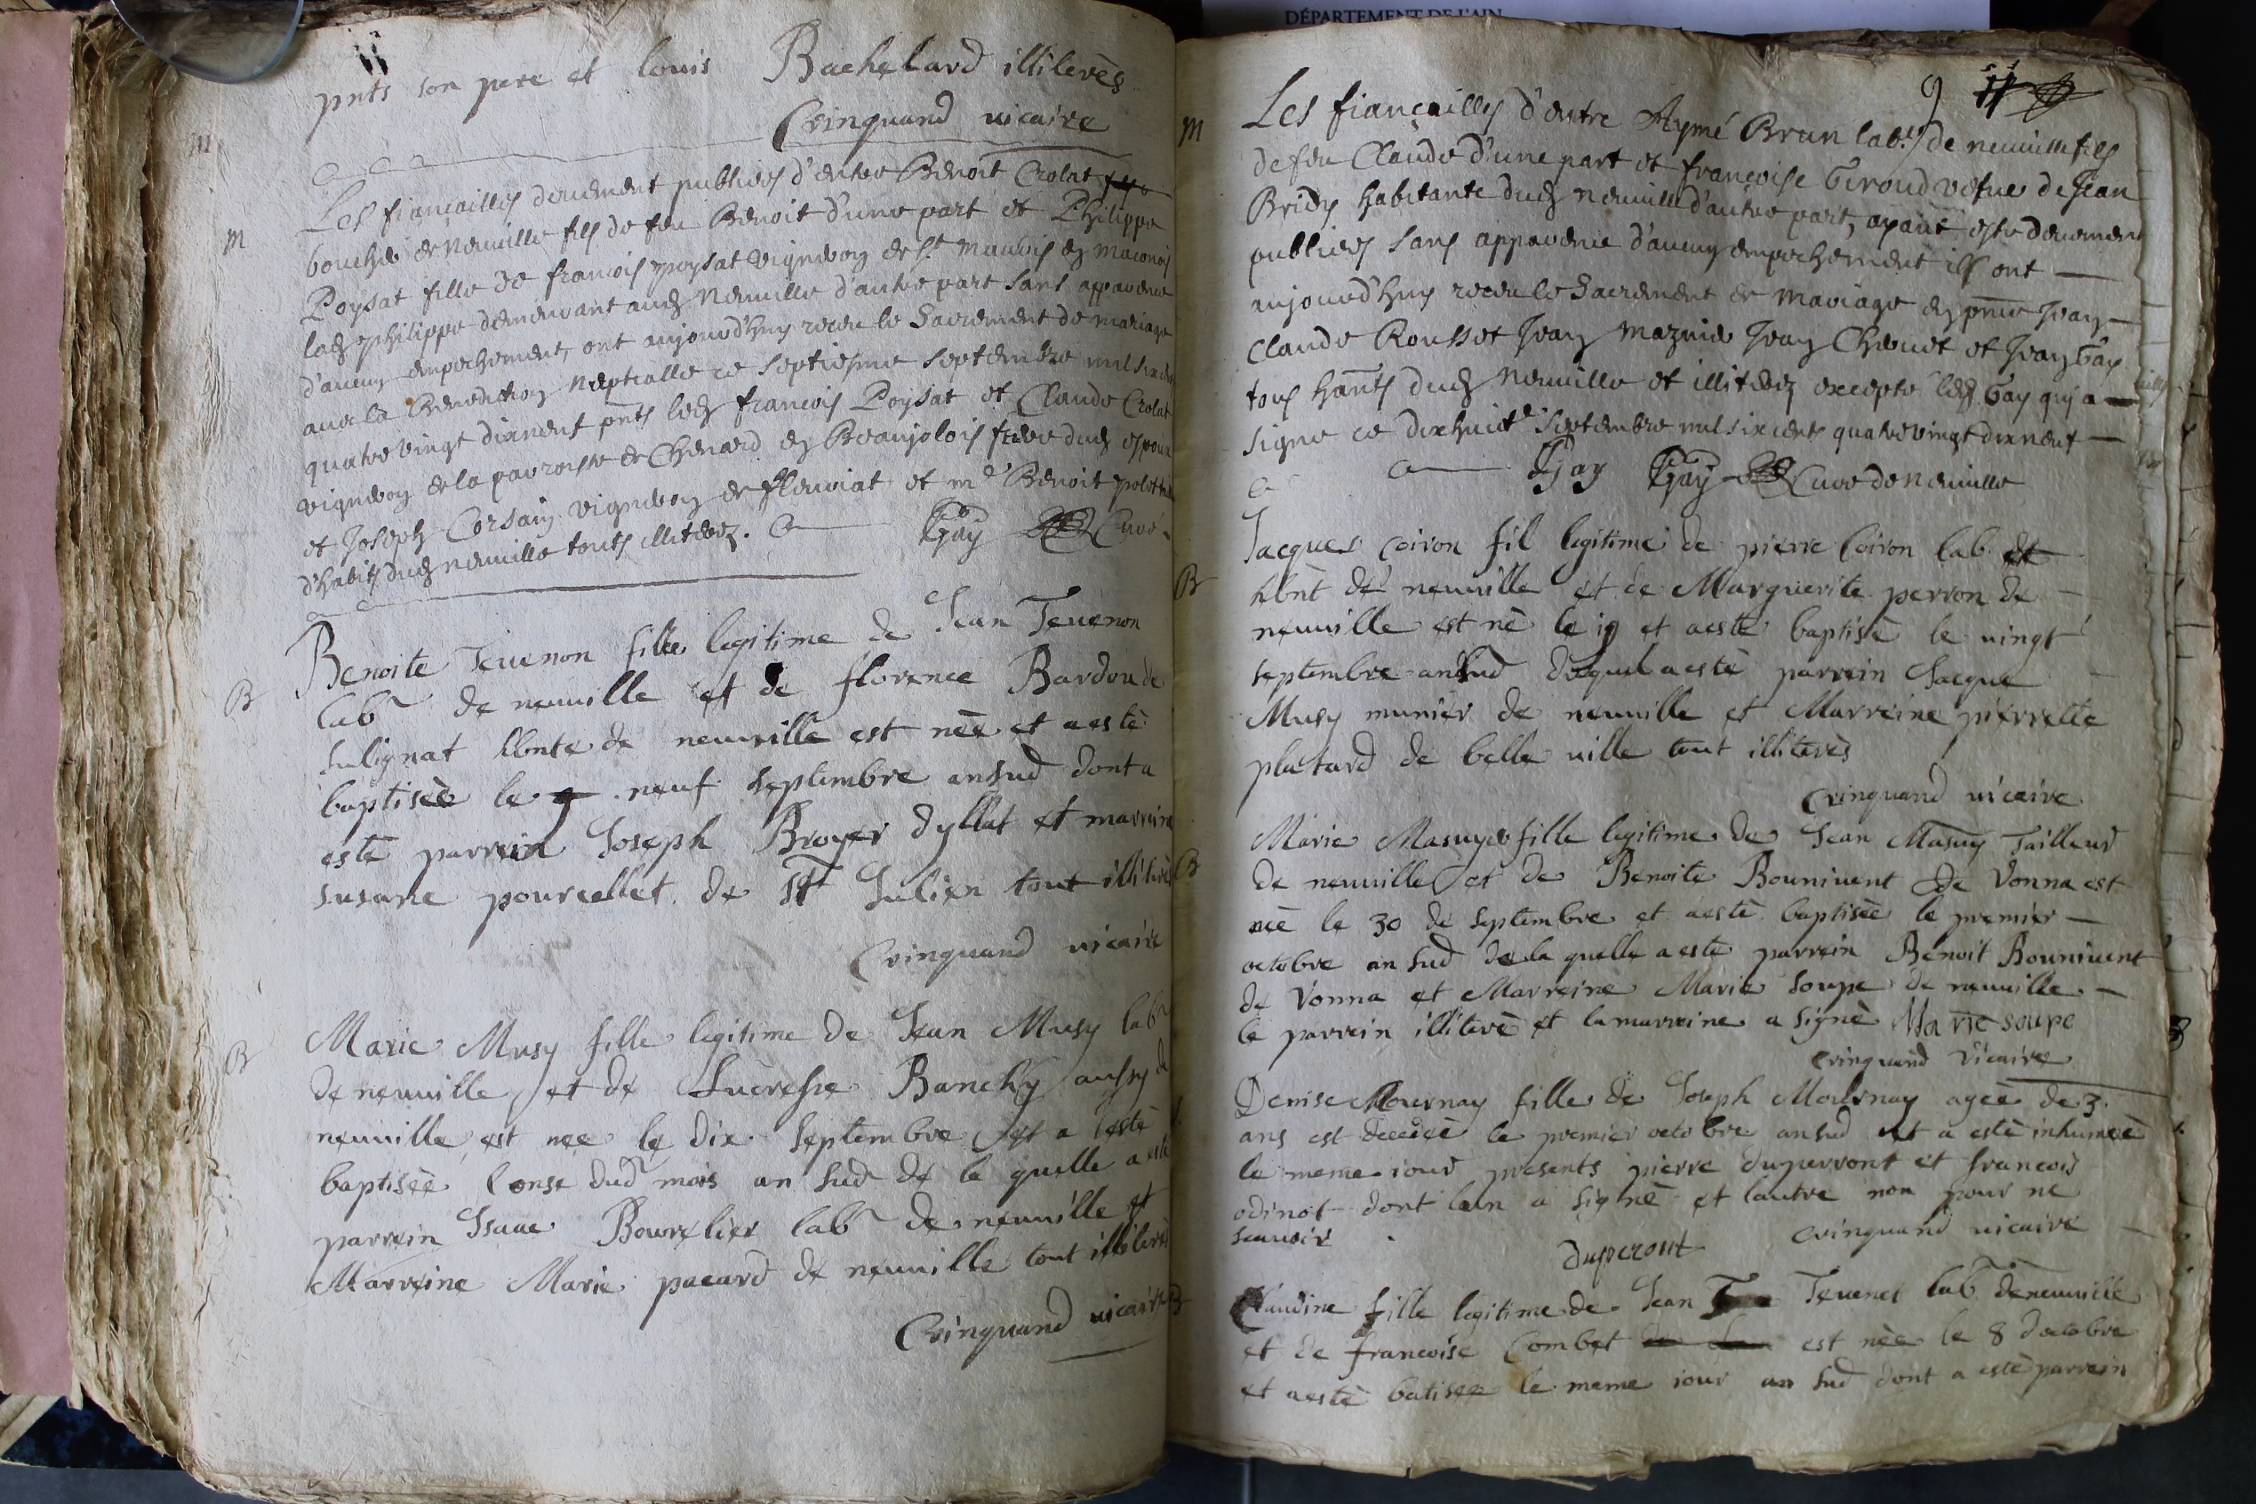 DÉPARTEMENT DE L'AIN
pnts son pere et louis Bachelard illiterès
Crinquand uicaire
M
Les fiançailles deuement publiees d'entre Benoit Crolat
boucher de Neuuille fils de feu Benoit d'une part et Philippe
Poysat fille de francois poysat vigneron de St Mauris en maconois
lad philippe demeurant aud Neuuille d'autre part sans apparence
d'aucun empechement, ont aujourd'huy receu le Sacrement de mariage
auec la Benediction Nuptialle ce septiesme septembre mil six cent
quatre vingt dixneuf pnts led francois Poysat et Claude Crolat
vigneron de la parroisse de Chenard en Beaujolois frere dud espoux
et Joseph Corsain vigneron de fleuriat et me Benoit
d'habits dud neuuille touts illiterez. Gay Curé.
B
Benoite Teuenon fille legitime de Jean Teuenon
labr de neuuille et de florence Bardon de
sulignat hbnte de neuuille est nèe et a estè
baptisèe le neuf septembre an sud dont a
estè parrein Joseph Broyer dyllat et marreine
susane pourcellet de St Julien tout illiterè
Crinquand uicaire
B
Marie Musy fille legitime de Jean Musy labr
de neuuille et de Lucresse Banchy aussy de
neuuille est nee le dix septembre et a estè
baptisèe l'onse dud mois an sud de la quelle a estè
parrein Isaac Bourelier labr de neuuille et
Marreine Marie pacard de neuuille tout illiterès
Crinquand uicaire
9
M
Les fiançailles d'entre Aymé Brun labr de neuuille fils
de feu Claude d'une part et françoise Giroud vefue de Jean
Bridy habitante dud Neuuille d'autre part, ayant este deuement
publiees sans apparence d'aucun empechement ils ont
aujourd'huy receu le Sacrement de Mariage en pnce Jean
Claude Rousset Jean Maznie Jean Cheuet et Jean Gay
tous hants dud Neuuille et illiterez excepte led. Gay qui a
signe ce dixhuict septembre mil six cents quatre vingt dixneuf
Gay Gay Curé de Neuuille
B
Jacques Coiron fil legitime de pierre Coiron lab
hbnt de neuuille et de Marguerite perron de
neuuille est nè le 19 et a estè baptisè le uingt
septembre an sud duquel a estè parrein Jacque
Musy munier de neuuille et Marreine pierrette
platard de belle uille tout illiterès
Crinquand uicaire
B
Marie Masuyer fille legitime de Jean Masuy Tailleur
de neuuille et de Benoite Bouniuent de Vonna est
nèe le 30 de septembre et a estè baptisèe le premier
octobre an sud de la quelle a estè parrein Benoit Bouniuent
de Vonna et Marreine Marie soupe de neuuille
le parrein illiterè et la marreine a signè Marie soupe
Crinquand Vicaire
Denise Mournay fille de Joseph Mournay agèe de 3
ans est decedèe le premier octobre an sud et a estè inhumèe
le meme iour presents pierre duperront et francois
odinot dont l'un a signè et l'autre non pour ne
scauoir
Duperont Crinquand uicaire
B
Claudine fille legitime de Jean Teuenet lab de neuuille
et de francoise Combet est nèe le 8 d'octobre
et a estè batisee le meme iour an sud dont a estè parrein